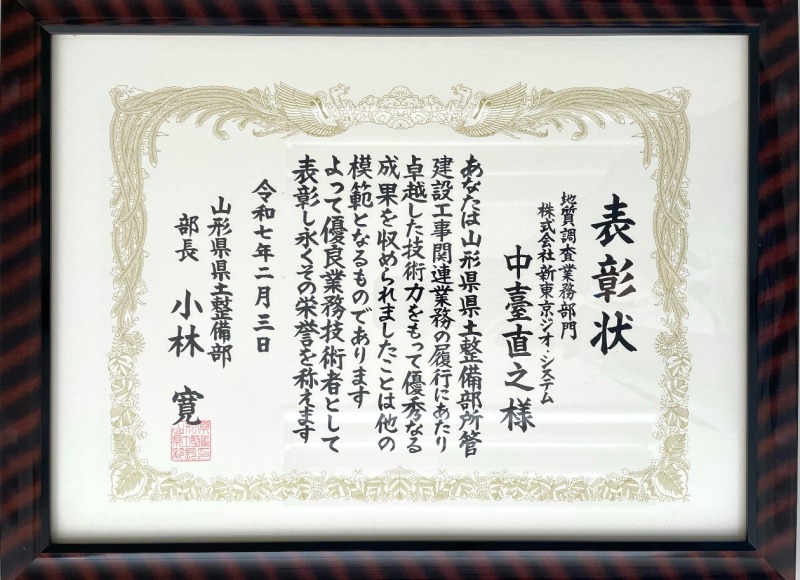 表彰状
地質調査業務部門
株式会社新東京ジオ・システム
中臺直之様
あなたは山形県県土整備部所管
建設工事関連業務の履行にあたり
卓越した技術力をもって優秀なる
成果を収められましたことは他の
模範となるものであります
よって優良業務技術者として
表彰し永くその栄誉を称えます
令和七年二月三日
山形県県土整備部
部長 小林 寛